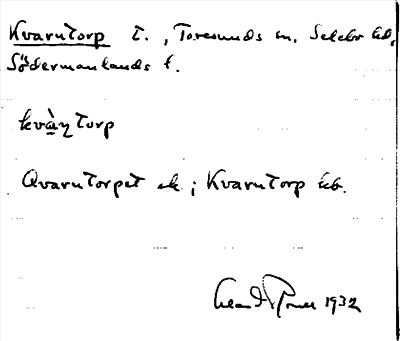 Kvarntorp t., Toresunds sn, Selebo hd,
Södermanlands l.
kvàn̩torp
Qvarntorpet ek; Kvarntorp kb.
1932